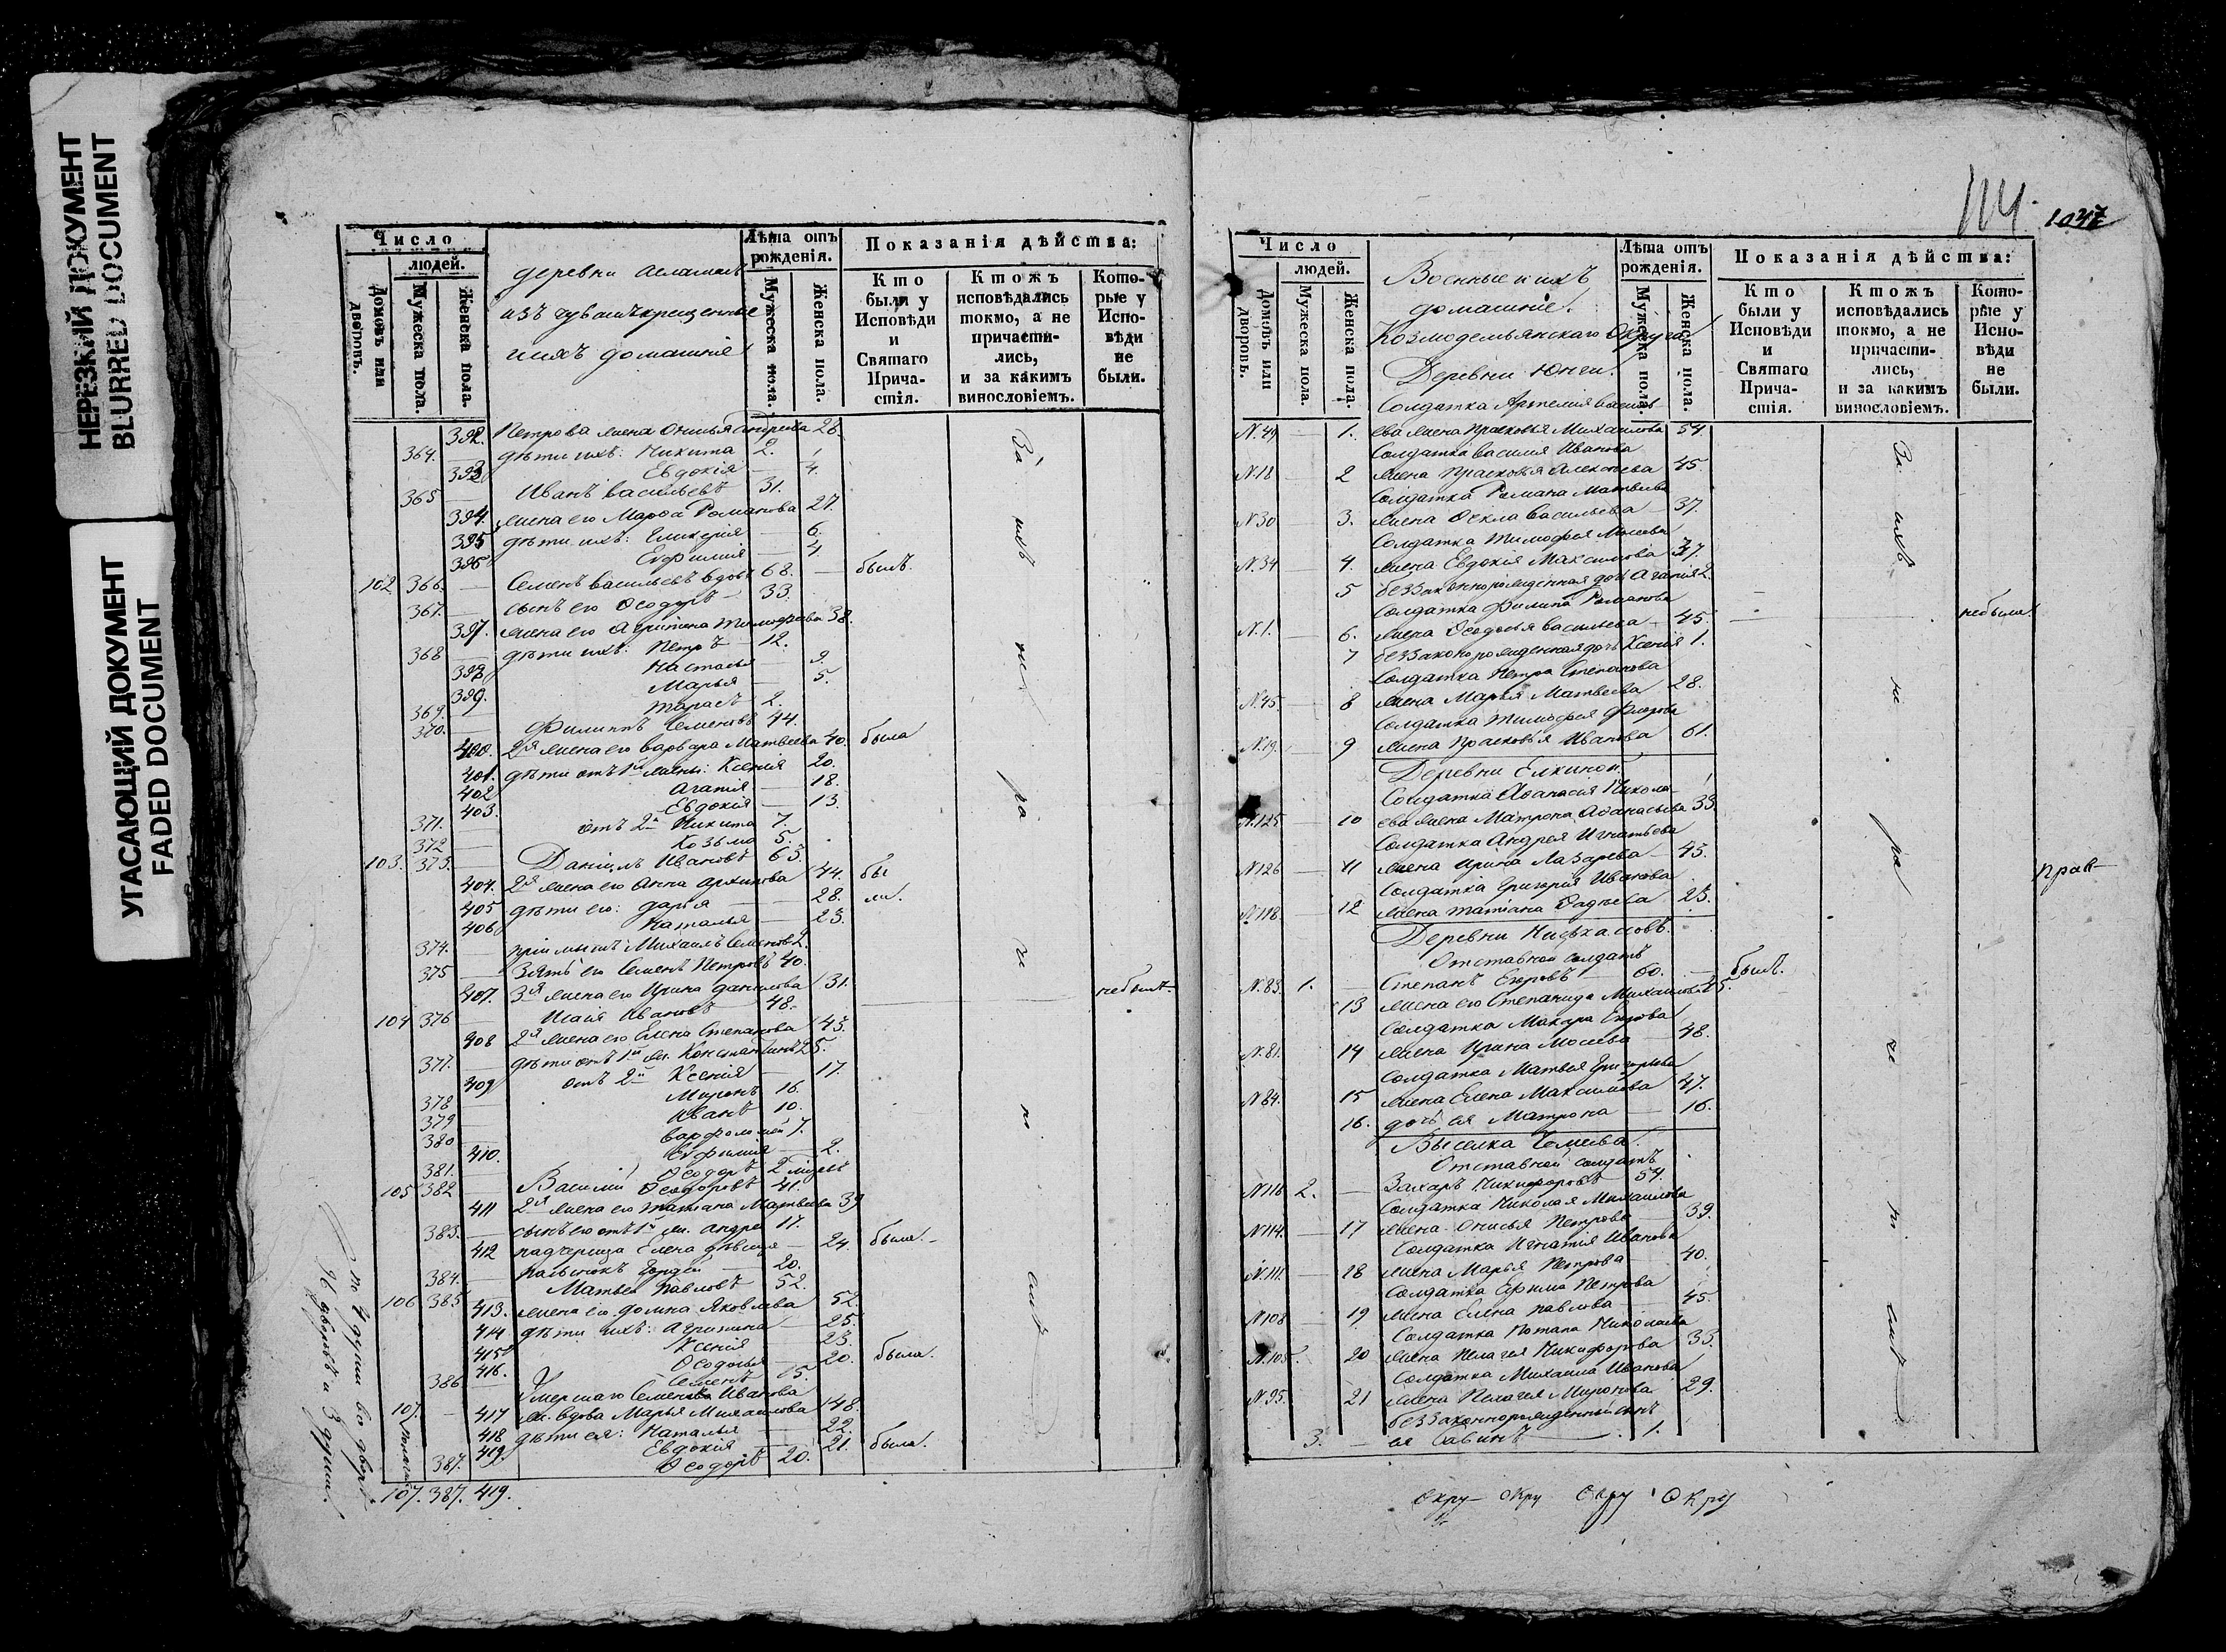 НЕРЕЗКИЙ ДОКУМЕНТ
BLURRED DOCUMENT
УГАСАЮЩИЙ ДОКУМЕНТ
FADED DOCUMENT
Число
людей.
Домовъ или дворовъ.
Мужеска пола.
Женска пола.
деревни
изъ чувашъ крещенные
и ихъ домашніе
Лѣта отъ рожденія.
Мужеска пола.
Женска пола.
Показанія дѣйства:
Кто были у Исповѣди и Святаго Причастія.
Ктожъ исповѣдались токмо, а не причастились, и за какимъ винословіемъ.
Которые у Исповѣди не были.
392. Петрова жена Онисья Андреева 28.
364. дѣти ихъ: Никита 2.
393 Евдокія 4.
365 Иванъ Васильевъ 31.
394. жена его Марѳа Романова 27.
395 дѣти ихъ: Гликерія 6.
396 Евфимія 4
102 366. Семенъ Васильевъ вдовъ 68. былъ.
367. сынъ его Ѳеодоръ 33.
397. жена его Агрипина Тимофеева 38.
368 дѣти ихъ: Петръ 12.
398 Настасья 9.
399. Марья 5.
369. Тарасъ 2.
370. Филиппъ Семеновъ 44.
400. 2я жена его Варвара Матвеева 40. была
401. дѣти отъ 1й жены: Ксенія 20.
402 Агапія 18.
403. Евдокія 13.
371. отъ 2й Никита 7.
372 Козьма 5.
103. 373. Даніилъ Ивановъ 63.
404. 2я жена его Анна Архипова 44. бы
405 дѣти его: Дарья 28. ли.
406 Наталья 23.
374. пріимышъ Михаилъ Семеновъ 2.
375 Зять его Семенъ Петровъ 40.
407. 3я жена его Ирина Данилова 31.
104 376 Исаія Ивановъ 48. небылъ.
408 2я жена его Елена Степанова 43.
377. дѣти отъ 1й ж. Константинъ 25.
409 отъ 2й Ксенія 17.
378 Миронъ 16.
379 Иванъ 10.
380 Варфоломей 7.
410. Евфимія 2.
381. Ѳеодоръ
105 382 Василій Ѳеодоровъ 41.
411 2я жена его Татіана Матвеева 39
383. сынъ его отъ 1й ж. Андрей 17.
412 падчерица Елена дѣвица 24. была.
384. Гордей 20.
106 385 Матвей Павловъ 52.
413. жена его Домна Яковлева 52.
414 дѣти ихъ: Агрипина 25.
415 Ксенія 23.
416. Ѳеодосья 20. была.
386 Семенъ 15.
Умершаго Семена Иванова
107. 417 ж. вдова Марья Михаилова 48.
418 дѣти ея: Наталья 22.
419. Евдокія 21. была.
387. Ѳеодоръ 20.
107. 387. 419.
За ихъ не ра че ні емъ
114.
Число
людей.
Домовъ или дворовъ.
Мужеска пола.
Женска пола.
Военные и ихъ
домашніе.
Козмодемьянскаго Округа
Деревни Юнги.
Лѣта отъ рожденія.
Мужеска пола.
Женска пола.
Показанія дѣйства:
Кто были у Исповѣди и Святаго Причастія.
Ктожъ исповѣдались токмо, а не причастились, и за какимъ винословіемъ.
Которые у Исповѣди не были.
Солдатка Артемия Василь-
N.49 1. ева жена Прасковья Михаилова 54.
Солдатка Василия Иванова
N.18 2 жена Прасковья Алексеева 45.
Солдатка Романа Матвеева
N.30 3. жена Ѳекла Васильева 37.
Солдатка Тимофея Мосеева
N.34 4. жена Евдокія Максимова 37.
5 беззаконнорожденная дочь Агапія 2.
Солдатка Филипа Романова
N.1. 6. жена Ѳеодосья Васильева 45. небыла.
7 беззаконорожденная дочь Ксенія 1.
Солдатка Петра Степанова
N.45. 8 жена Марья Матвеева 28.
Солдатка Тимофея
N.19. 9 жена Прасковья Иванова 61.
Деревни Елкиной.
Солдатка Аѳанасія Никола-
N.125 10 ева жена Матрена Аѳанасьева 33.
Солдатка Андрея Игнатьева
N.126 11 жена Ирина Лазарева 43.
Солдатка Григорія Иванова
N.118. 12 жена Татіана Ѳадеева 23.
Отставной солдатъ
N.83. 1. Степанъ Егоровъ 60. былъ.
13 жена его Степанида Михаилова
Солдатка Макара
N.81. 14 жена Ирина Мосеева 48.
Солдатка Матвея Григорьева
N.84. 15 жена Елена Максимова 47.
16. дочь ея Матрона 16.
Отставной солдатъ
N.116 2. Захаръ Никифоровъ 54.
Солдатка Николая Михаилова
N.114. 17 жена Онисья Петрова 39.
Солдатка Игнатія Иванова
N.111. 18 жена Марья Петрова 40.
Солдатка Ефима Петрова
N.108 19 жена Елена Павлова 45.
Солдатка Потапа Николаева
N.105. 20 жена Пелагея Никифорова 33.
Солдатка Михаила Иванова
N.95. 21 жена Пелагея Миронова 29.
беззаконнорожденный сынъ
3. ея Савинъ 1.
За ихъ не ра че ні емъ
прав-
Окру- окру Окру Окру